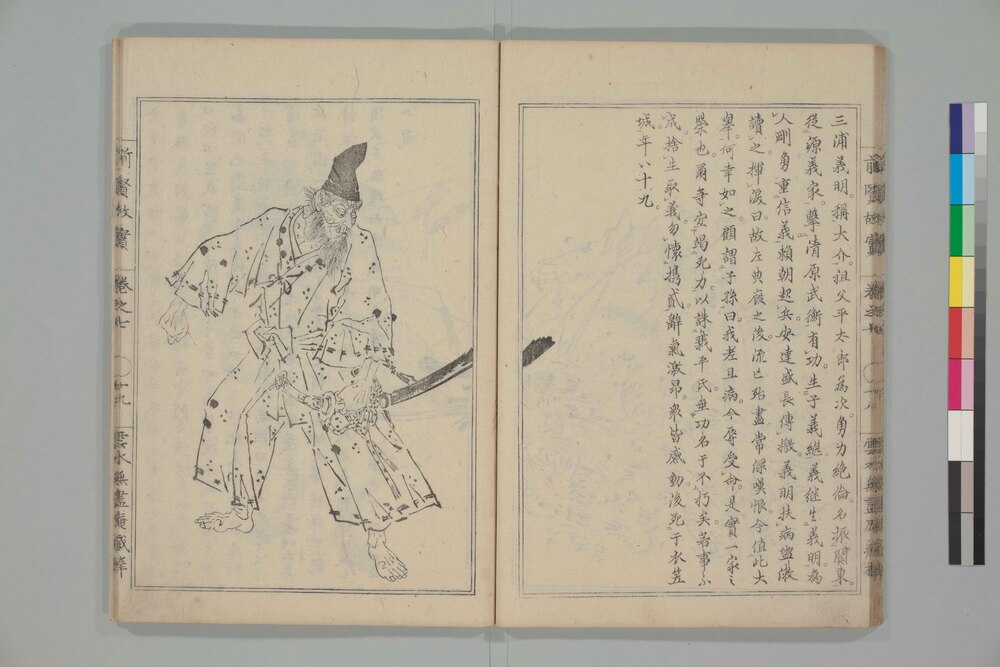 三浦義明。稱大介。祖父平太郎為次。膂力絶倫。名振關東。
從源義家。擊清原武衡有功。生子義繼。義繼生義明。為
人剛勇。重信義。賴朝起兵。安達盛長傳檄。義明扶病盥漱
讀之。揮淚曰。故左典廄之後。流亡殆盡。常深嘆恨。今值此大
舉。何幸如之。顧謂子孫曰。我老且病。今辱受命。是實一家之
榮也。爾等宜竭死力。以誅戮平氏。垂功名于不朽矣。若事不
成。捨生取義。勿懷携貳。辭氣激昂。衆皆感動。後死于衣笠
城。年八十九
前賢故實
卷之七
前賢故實
卷之七
十九
雲水無盡庵藏梓